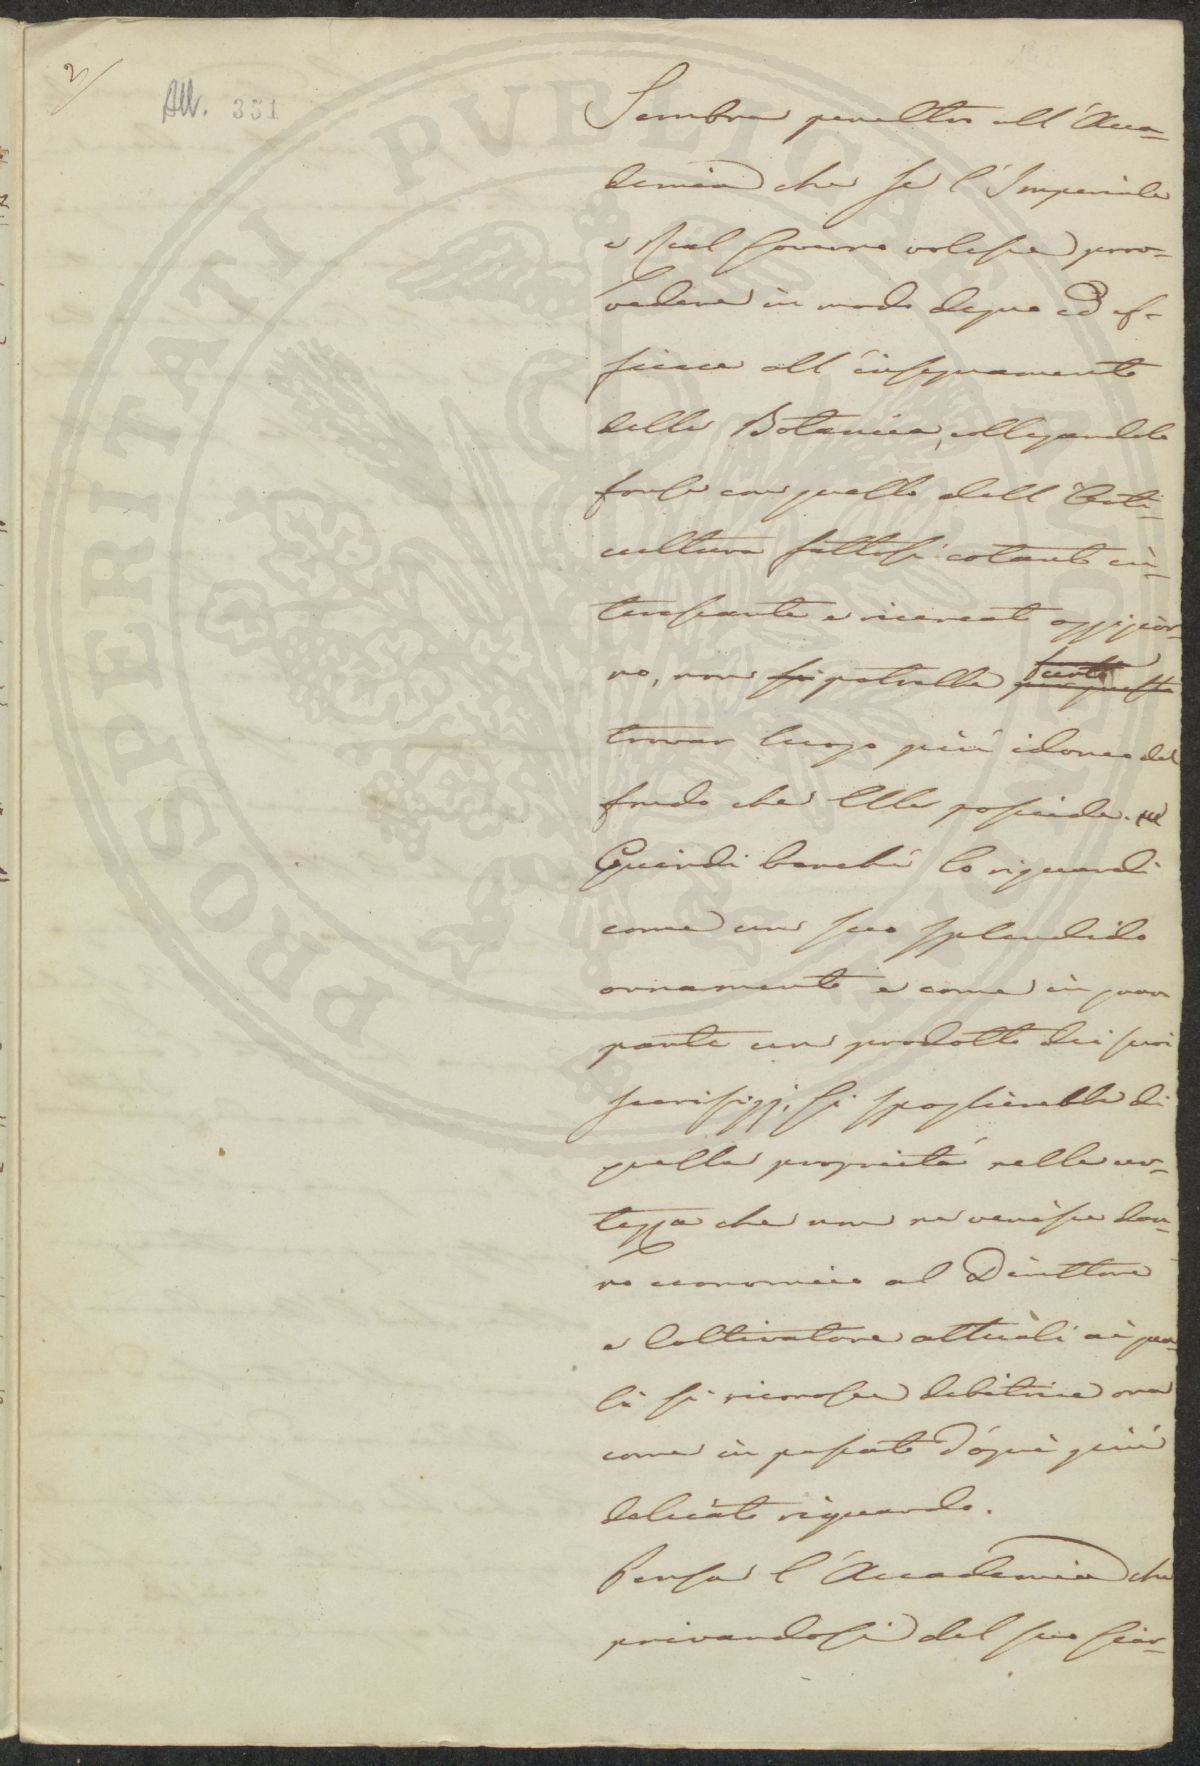 2/
All. 351
Sembra peraltro all'Acca-
demia che se l'Imperiale
e Real Governo volesse prov-
vedere in modo degno ed ef-
ficace all'insegnamento
della Botanica, collegandolo
forse con quello dell'Orti-
cultura fattosi cotanto in-
teressante e ricercato oggigior-
no, non si potrebbe
trovar luogo più idoneo del
fondo che Ella possiede.
Quindi benchè lo riguardi
come un suo splendido
ornamento e come in gran
parte un prodotto dei suoi
sacrifizj, si spoglierebbe di
quella proprietà nella cer-
tezza che non ne venisse dan-
no economico al Direttore
e Coltivatore attuali ai qua-
li si riconosce debitrice ora
come in passato d'ogni più
delicato riguardo.
Pensa l'Accademia che
privandosi del suo Giar-
PROSPERITATI PVBLICAE AVGENDAE